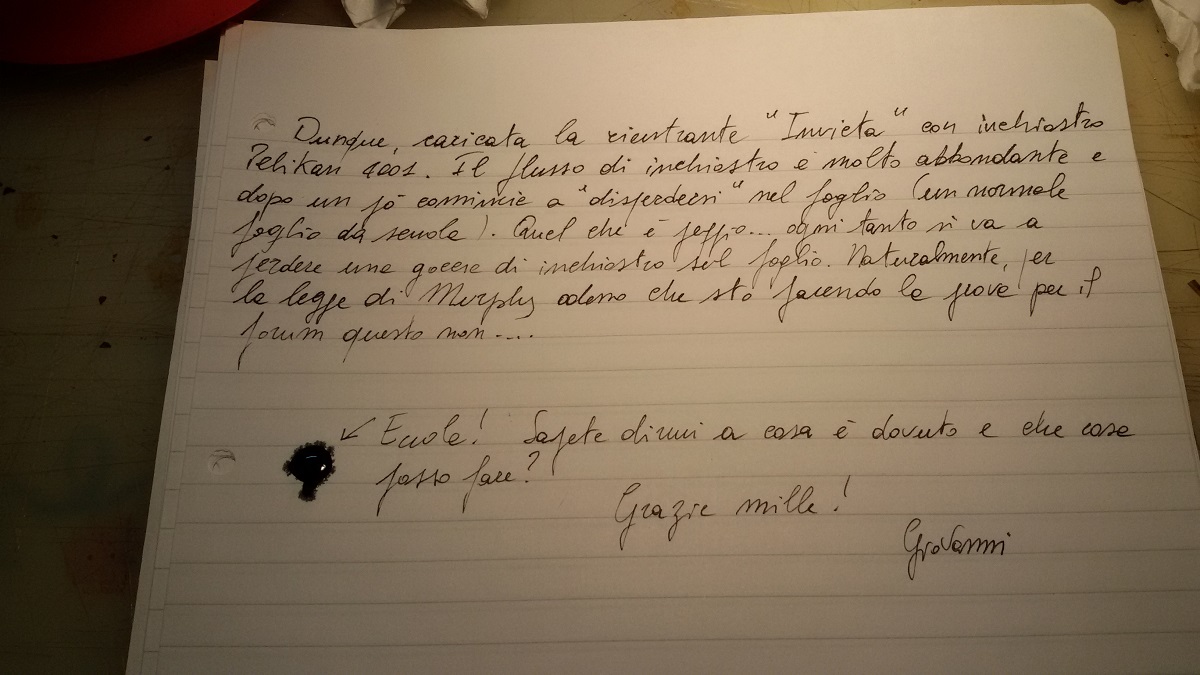 Dunque, caricata la rientrante "Invicta" con inchiostro
Pelikan 4001. Il flusso di inchiostro è molto abbondante e
dopo un pò comincia a "disperdersi" nel foglio (un normale
foglio da scuola). Quel che è peggio... ogni tanto si va a
perdere una goccia di inchiostro sul foglio. Naturalmente, per
la legge di Murphy adesso che sto facendo le prove per il
forum questo non....
Eccola! Sapete dirmi a cosa è dovuto e che cosa
posso fare?
Grazie mille!
Giovanni